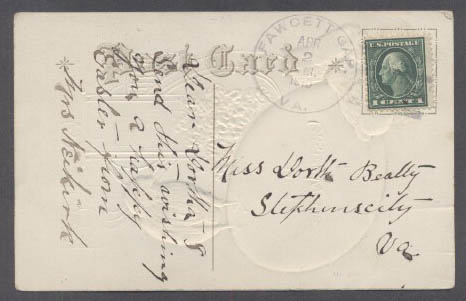 Post Card
FAWCETT GAP
APR
2
VA.
U.S. POSTAGE
1 CENT 1
Dear Dortha I
Send this wishing
you a happy
Easter from
Mrs Neikirk
Miss Dorth Beatty
Stephenscity
Va